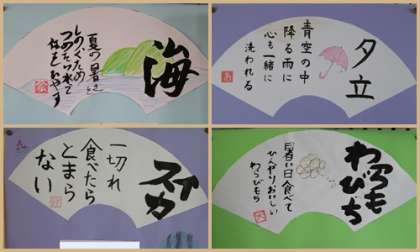 海
夏の暑さを
しのぐための
つめたい水で
体をひやす
夕立
青空の中
降る雨に
心も一緒に
洗われる
スイカ
一切れ
食べたら
とまら
ない
わらびもち
暑い日食べて
ひんやりおいしい
わらびもち